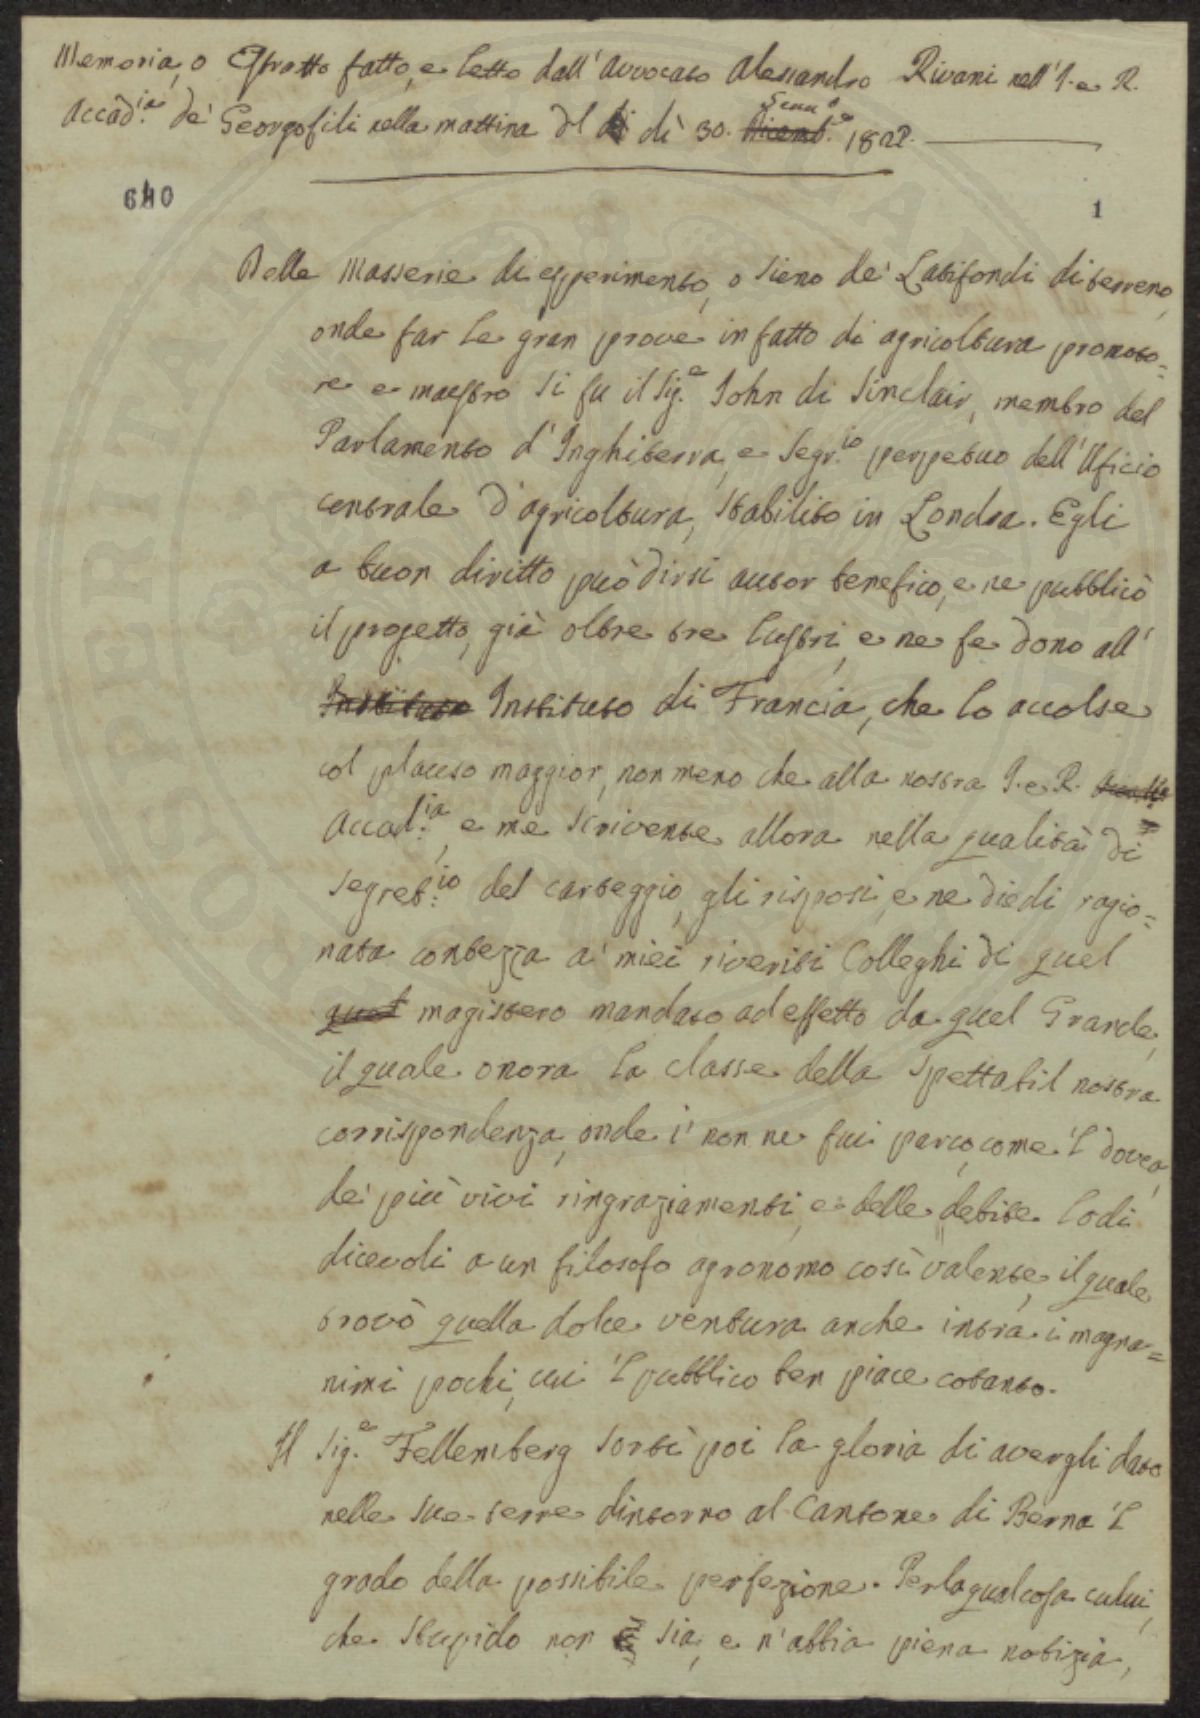 Memoria, o Estratto fatto, e letto dall'Avvocato Alessandro Rivani nell'I. e R.
Accad.ia de' Georgofili nella mattina del dì 30. Genn.o 182
640
1
Delle Masserie di esperimento, o sieno de' Latifondi di terreno,
onde far le gran prove in fatto di agricoltura promoto=
re e maestro si fu il Sig.e John di Sinclair, membro del
Parlamento d'Inghilterra, e Segr.io perpetuo dell'Uficio
centrale d'agricoltura, stabilito in Londra. Egli
a buon diritto può dirsi autor benefico, e ne pubblicò
il progetto, già oltre tre lustri, e ne fe dono all'
Instituto Instituto di Francia, che lo accolse
col plauso maggior, non meno che alla nostra I. e R.
Accad.ia, e me scrivente allora nella qualità di
Segret.io del carteggio, gli risposi, e ne diedi ragio=
nata contezza a' miei riveriti Colleghi di quel
quel magistero mandato ad effetto da quel Grande,
il quale onora la classe della spettabil nostra
corrispondenza, onde i' non ne fui parco, come 'l dovea,
de' più vivi ringraziamenti, e delle debite lodi
dicevoli a un filosofo agronomo così valente, il quale
trovò quella dolce ventura anche intra i magna=
nimi pochi, cui 'l pubblico ben piace cotanto.
Il Sig.e Fellemberg sortì poi la gloria di avergli dato
nelle sue terre dintorno al Cantone di Berna 'l
grado della possibile perfezione. Perlaqualcosa colui,
che stupido non sia, e n'abbia piena notizia,